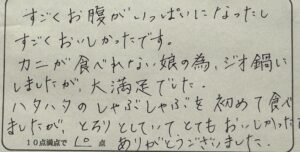 すごくお腹がいっぱいになったし
すごくおいしかったです。
カニが食べれない娘の為、ジオ鍋に
しましたが、大満足でした。
ハタハタのしゃぶしゃぶを初めて食べ
ましたが、とろりとしていて、とてもおいしかったです
10点満点で 10 点 ありがとうございました。